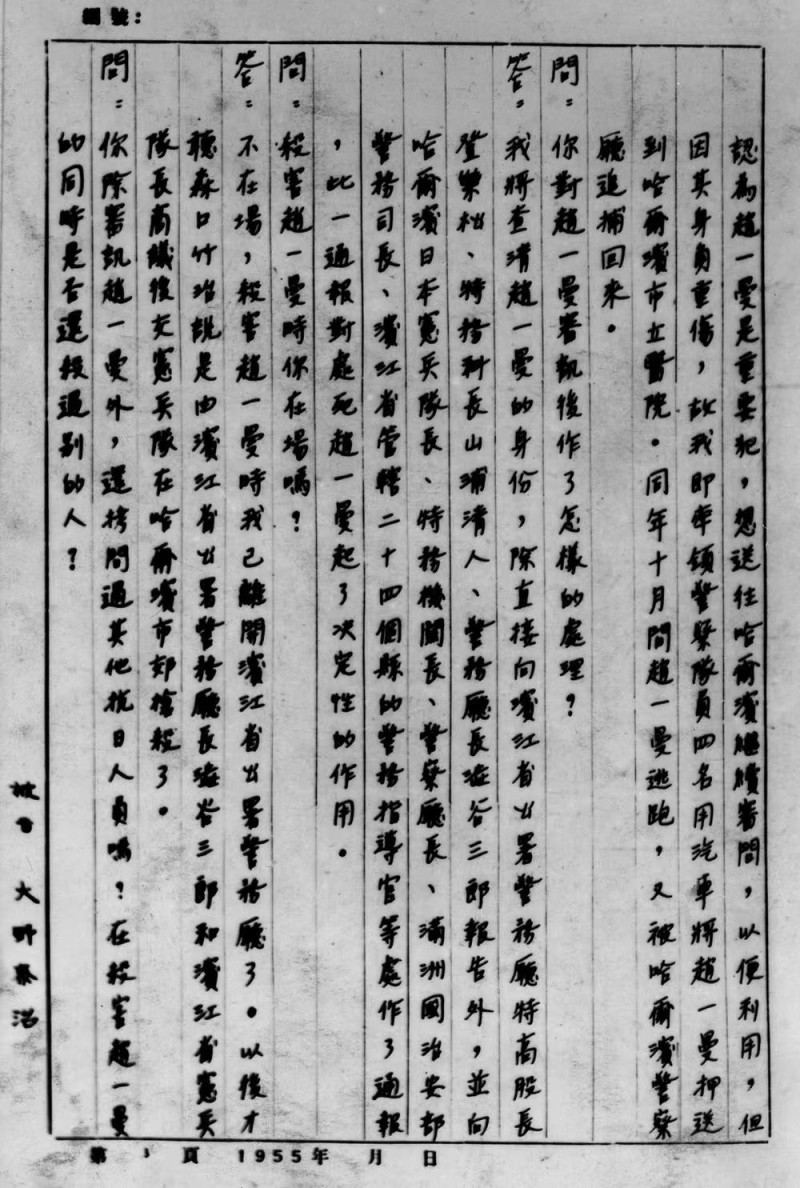 編號:
認為趙一曼是重要犯，想送往哈爾濱繼續審問，以便利用，但
因其身負重傷，故我即率領警察隊員四名用汽車將趙一曼押送
到哈爾濱市立醫院。同年十月間趙一曼逃跑，又被哈爾濱警察
廳追捕回來。
問：你對趙一曼審訊後作了怎樣的處理？
答：我將查清趙一曼的身份，除直接向濱江省公署警務廳特高股長
登樂松、特務科長山浦清人、警務廳長澁谷三郎報告外，並向
哈爾濱日本憲兵隊長、特務機關長、警察廳長、滿洲國治安部
警務司長、濱江省管轄二十四個縣的警務指導官等處作了通報
，此一通報對處死趙一曼起了決定性的作用。
問：殺害趙一曼時你在場嗎？
答：不在場，殺害趙一曼時我已離開濱江省公署警務廳了。以後才
聽森口竹治說是由濱江省公署警務廳長澁谷三郎和濱江省憲兵
隊長商議後交憲兵隊在哈爾濱市郊槍殺了。
問：你除審訊趙一曼外，還拷問過其他抗日人員嗎？在殺害趙一曼
的同時是否還殺過別的人？
被告 大野泰治
第 3 頁 1955年 月 日